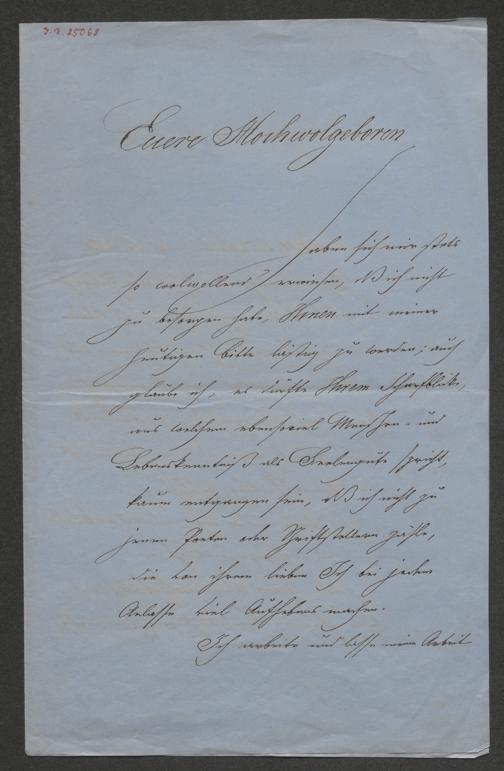 J. N. 85068
Euere Hochwolgeboren
haben sich mir stets
so wolwollend erwiesen, daß ich nicht
zu besorgen habe, Ihnen mit meiner
heutigen Bitte lästig zu werden; auch
glaube ich, es dürfte Ihrem Scharfblicke,
aus welchem ebensoviel Menschen- und
Lebenskenntniß als Seelengüte spricht,
kaum entgangen sein, daß ich nicht zu
jenen Poeten oder Schriftstellern zähle,
die von ihrem lieben Ich bei jedem
Anlasse viel Aufhebens machen.
Ich arbeite und lasse meine Arbeit